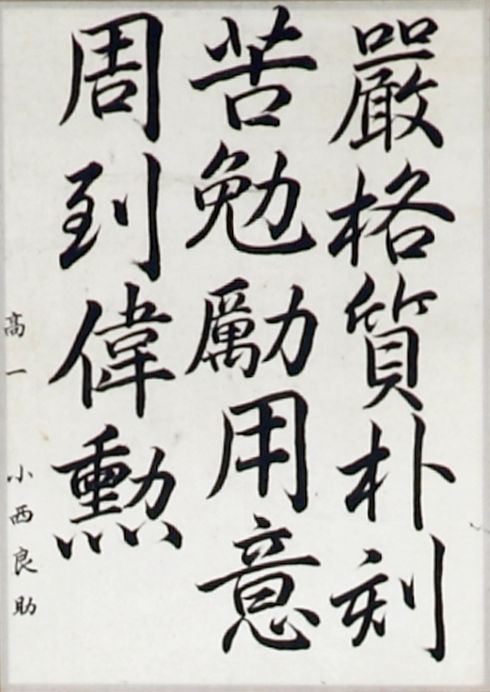 嚴格質朴刻
苦勉勵用意
周到偉勲
高一 小西良助